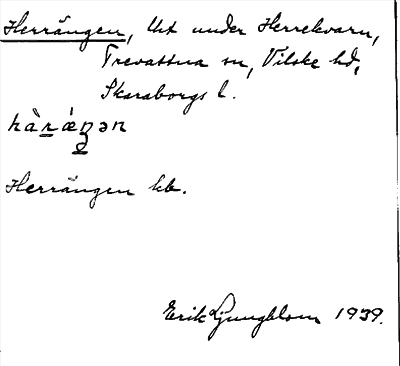 Herrängen, Urt under Herrekvarn,
Trevattna sn, Vilske hd,
Skaraborgs l.
hà̱ráŋən
Herrängen kb.
Erik Ljungblom 1939.